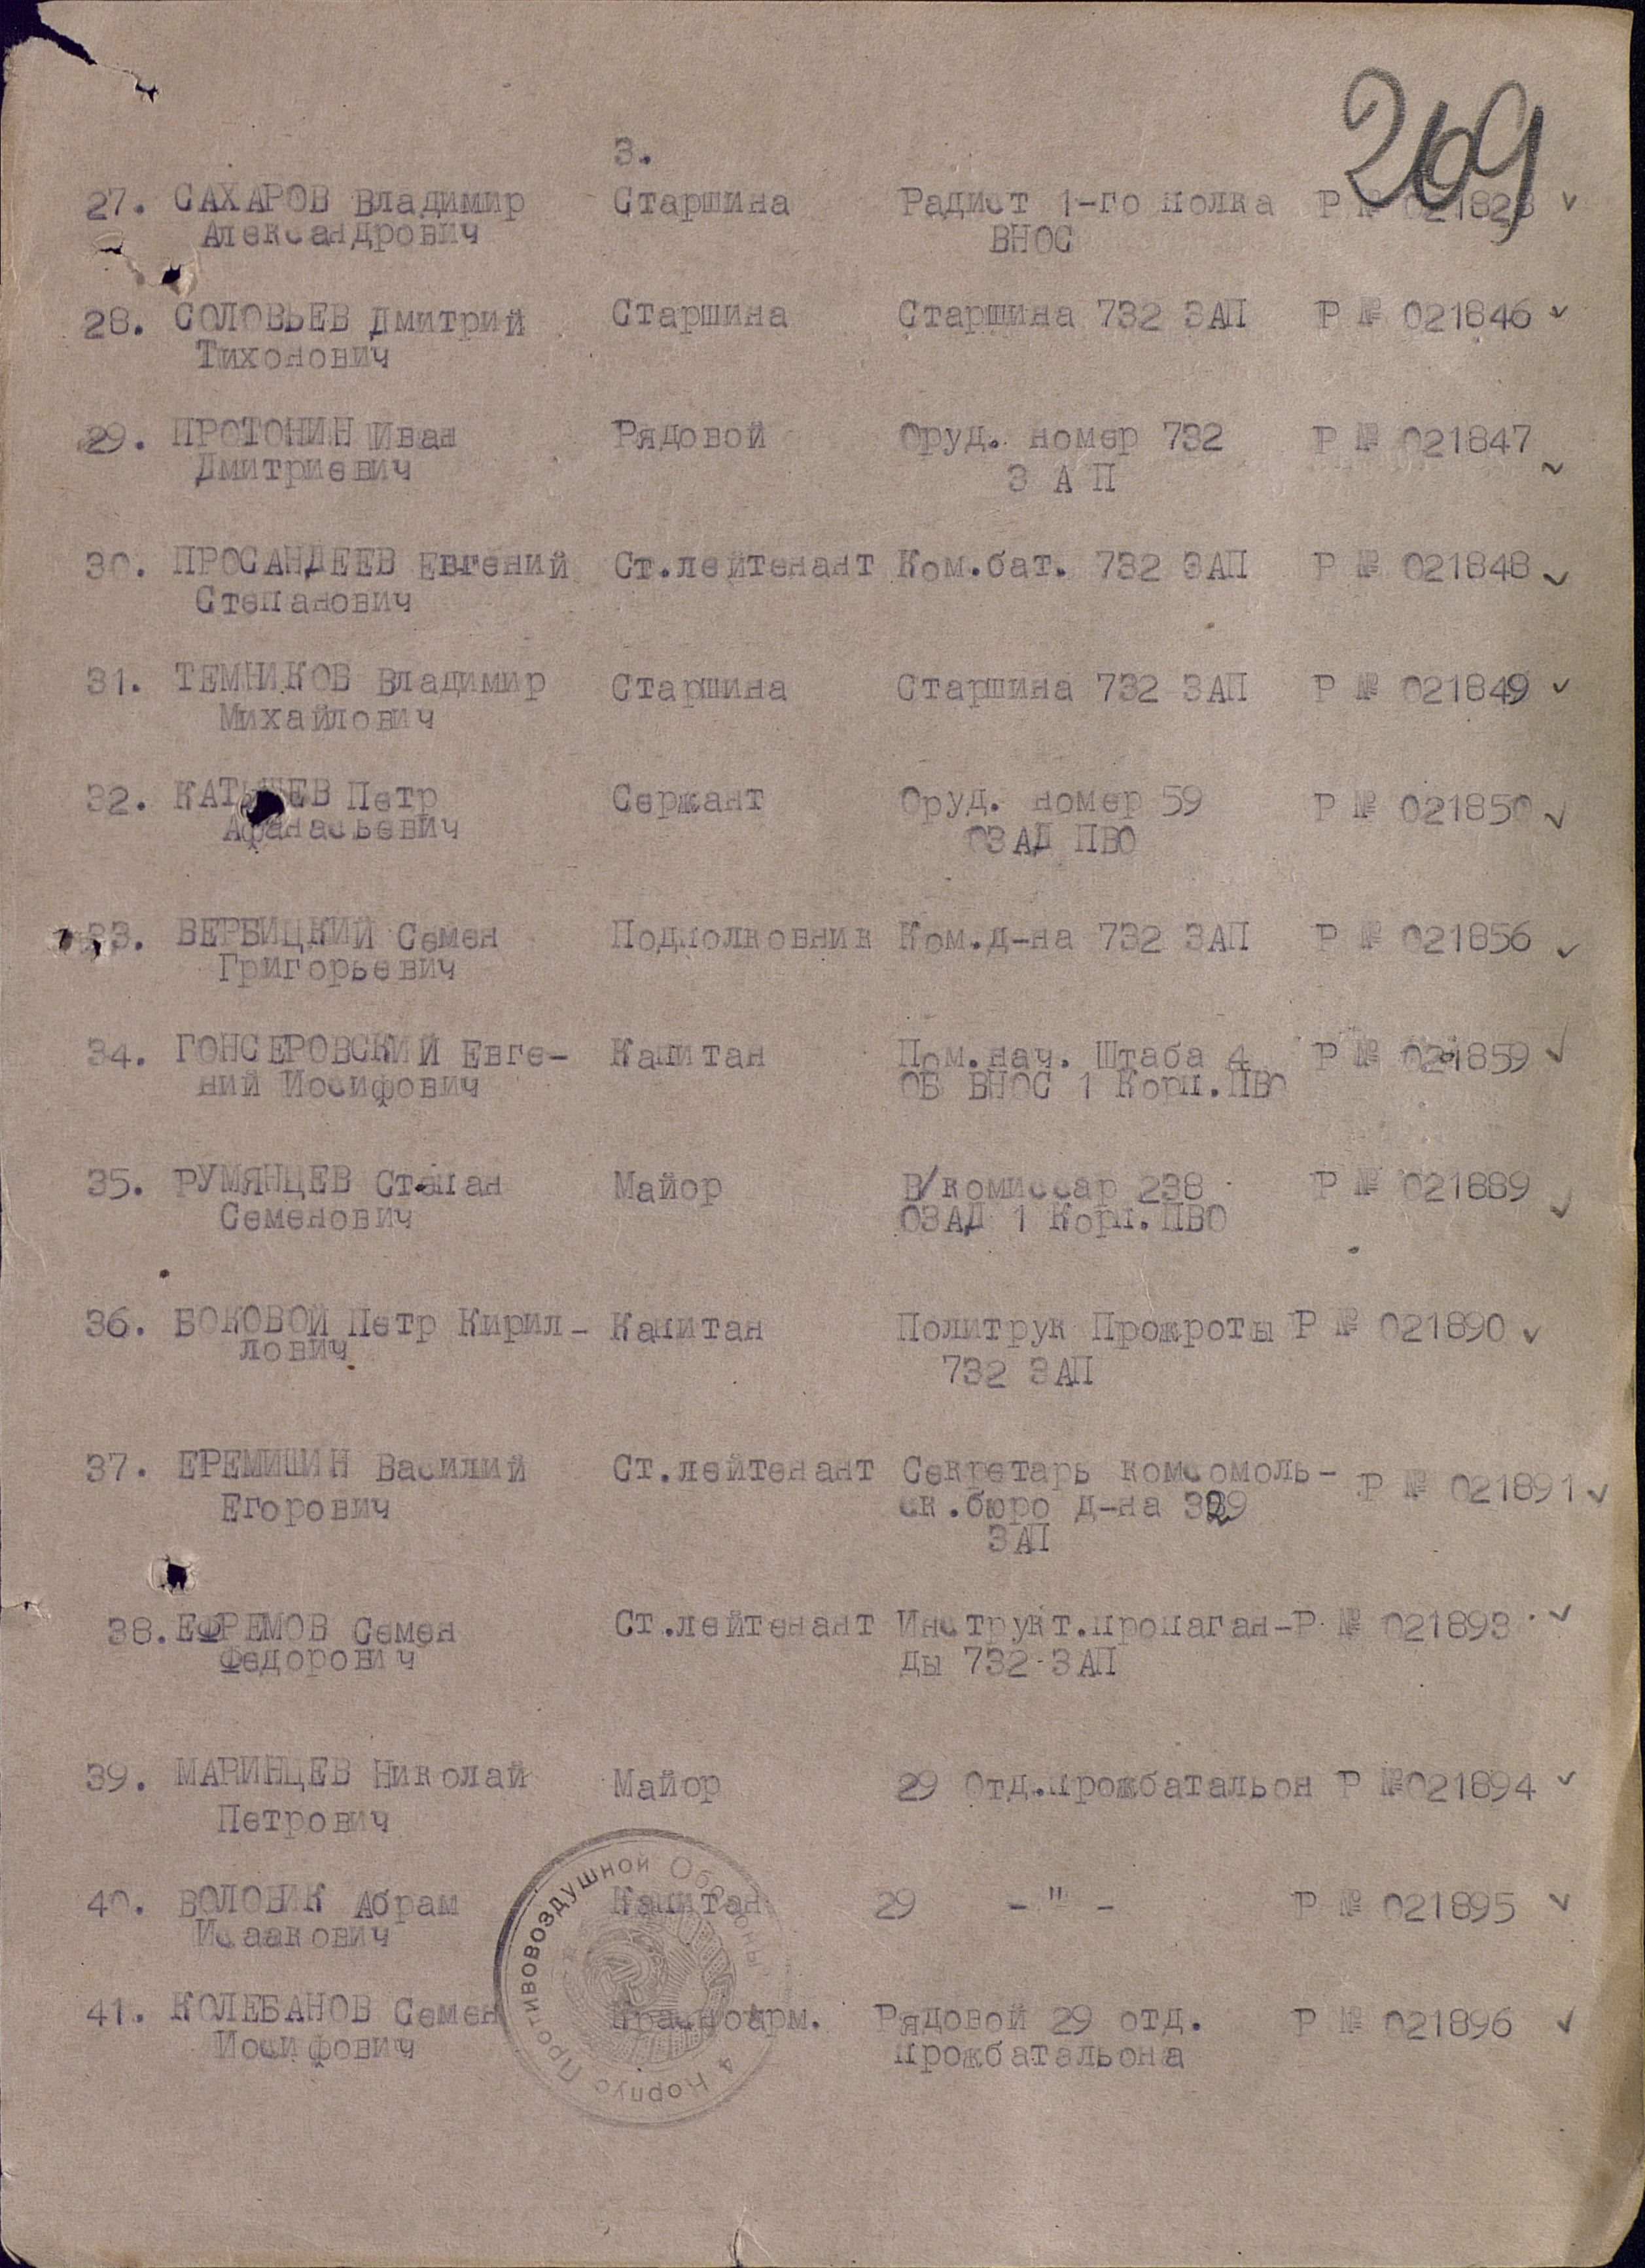 269
3.
27. САХАРОВ Владимир Старшина Радист 1-го полка Р №
Александрович ВНОС
28. СОЛОВЬЕВ Дмитрий Старшина Старшина 732 ЗАП Р № 021846
Тихонович
29. ПРОТОНИН Иван Рядовой Оруд. номер 732 Р № 021847
Дмитриевич З А П
30. ПРОСАНДЕЕВ Евгений Ст.лейтенант Ком.бат. 732 ЗАП Р № 021848
Степанович
31. ТЕМНИКОВ Владимир Старшина Старшина 732 ЗАП Р № 021849
Михайлович
32. Петр Сержант Оруд. номер 59 Р № 021850
Афанасьевич ОЗАД ПВО
33. ВЕРБИЦКИЙ Семен Подполковник Ком.д-на 732 ЗАП Р № 021856
Григорьевич
34. ГОНСЕРОВСКИЙ Евге- Капитан Пом.нач. Штаба 4 Р № 021859
ний Иосифович ОБ ВНОС 1 Корп.ПВО
35. РУМЯНЦЕВ Степан Майор В/комиссар 238 Р № 021889
Семенович ОЗАД 1 Корп.ПВО
36. БОКОВОЙ Петр Кирил- Капитан Политрук Прожроты Р № 021890
лович 732 ЗАП
37. ЕРЕМИШИН Василий Ст.лейтенант Секретарь комсомоль- Р № 021891
Егорович ск.бюро д-на 329
ЗАП
38. ЕФРЕМОВ Семен Ст.лейтенант Инструкт.пропаган- Р № 021893
Федорович ды 732 ЗАП
39. МАРИНЦЕВ Николай Майор 29 Отд.прожбатальон Р №021894
Петрович
40. ВОЛОВИК Абрам Капитан 29 -"- Р № 021895
Исаакович
41. КОЛЕБАНОВ Семен Красноарм. Рядовой 29 отд. Р № 021896
Иосифович прожбатальона
4 Корпус Противовоздушной Обороны